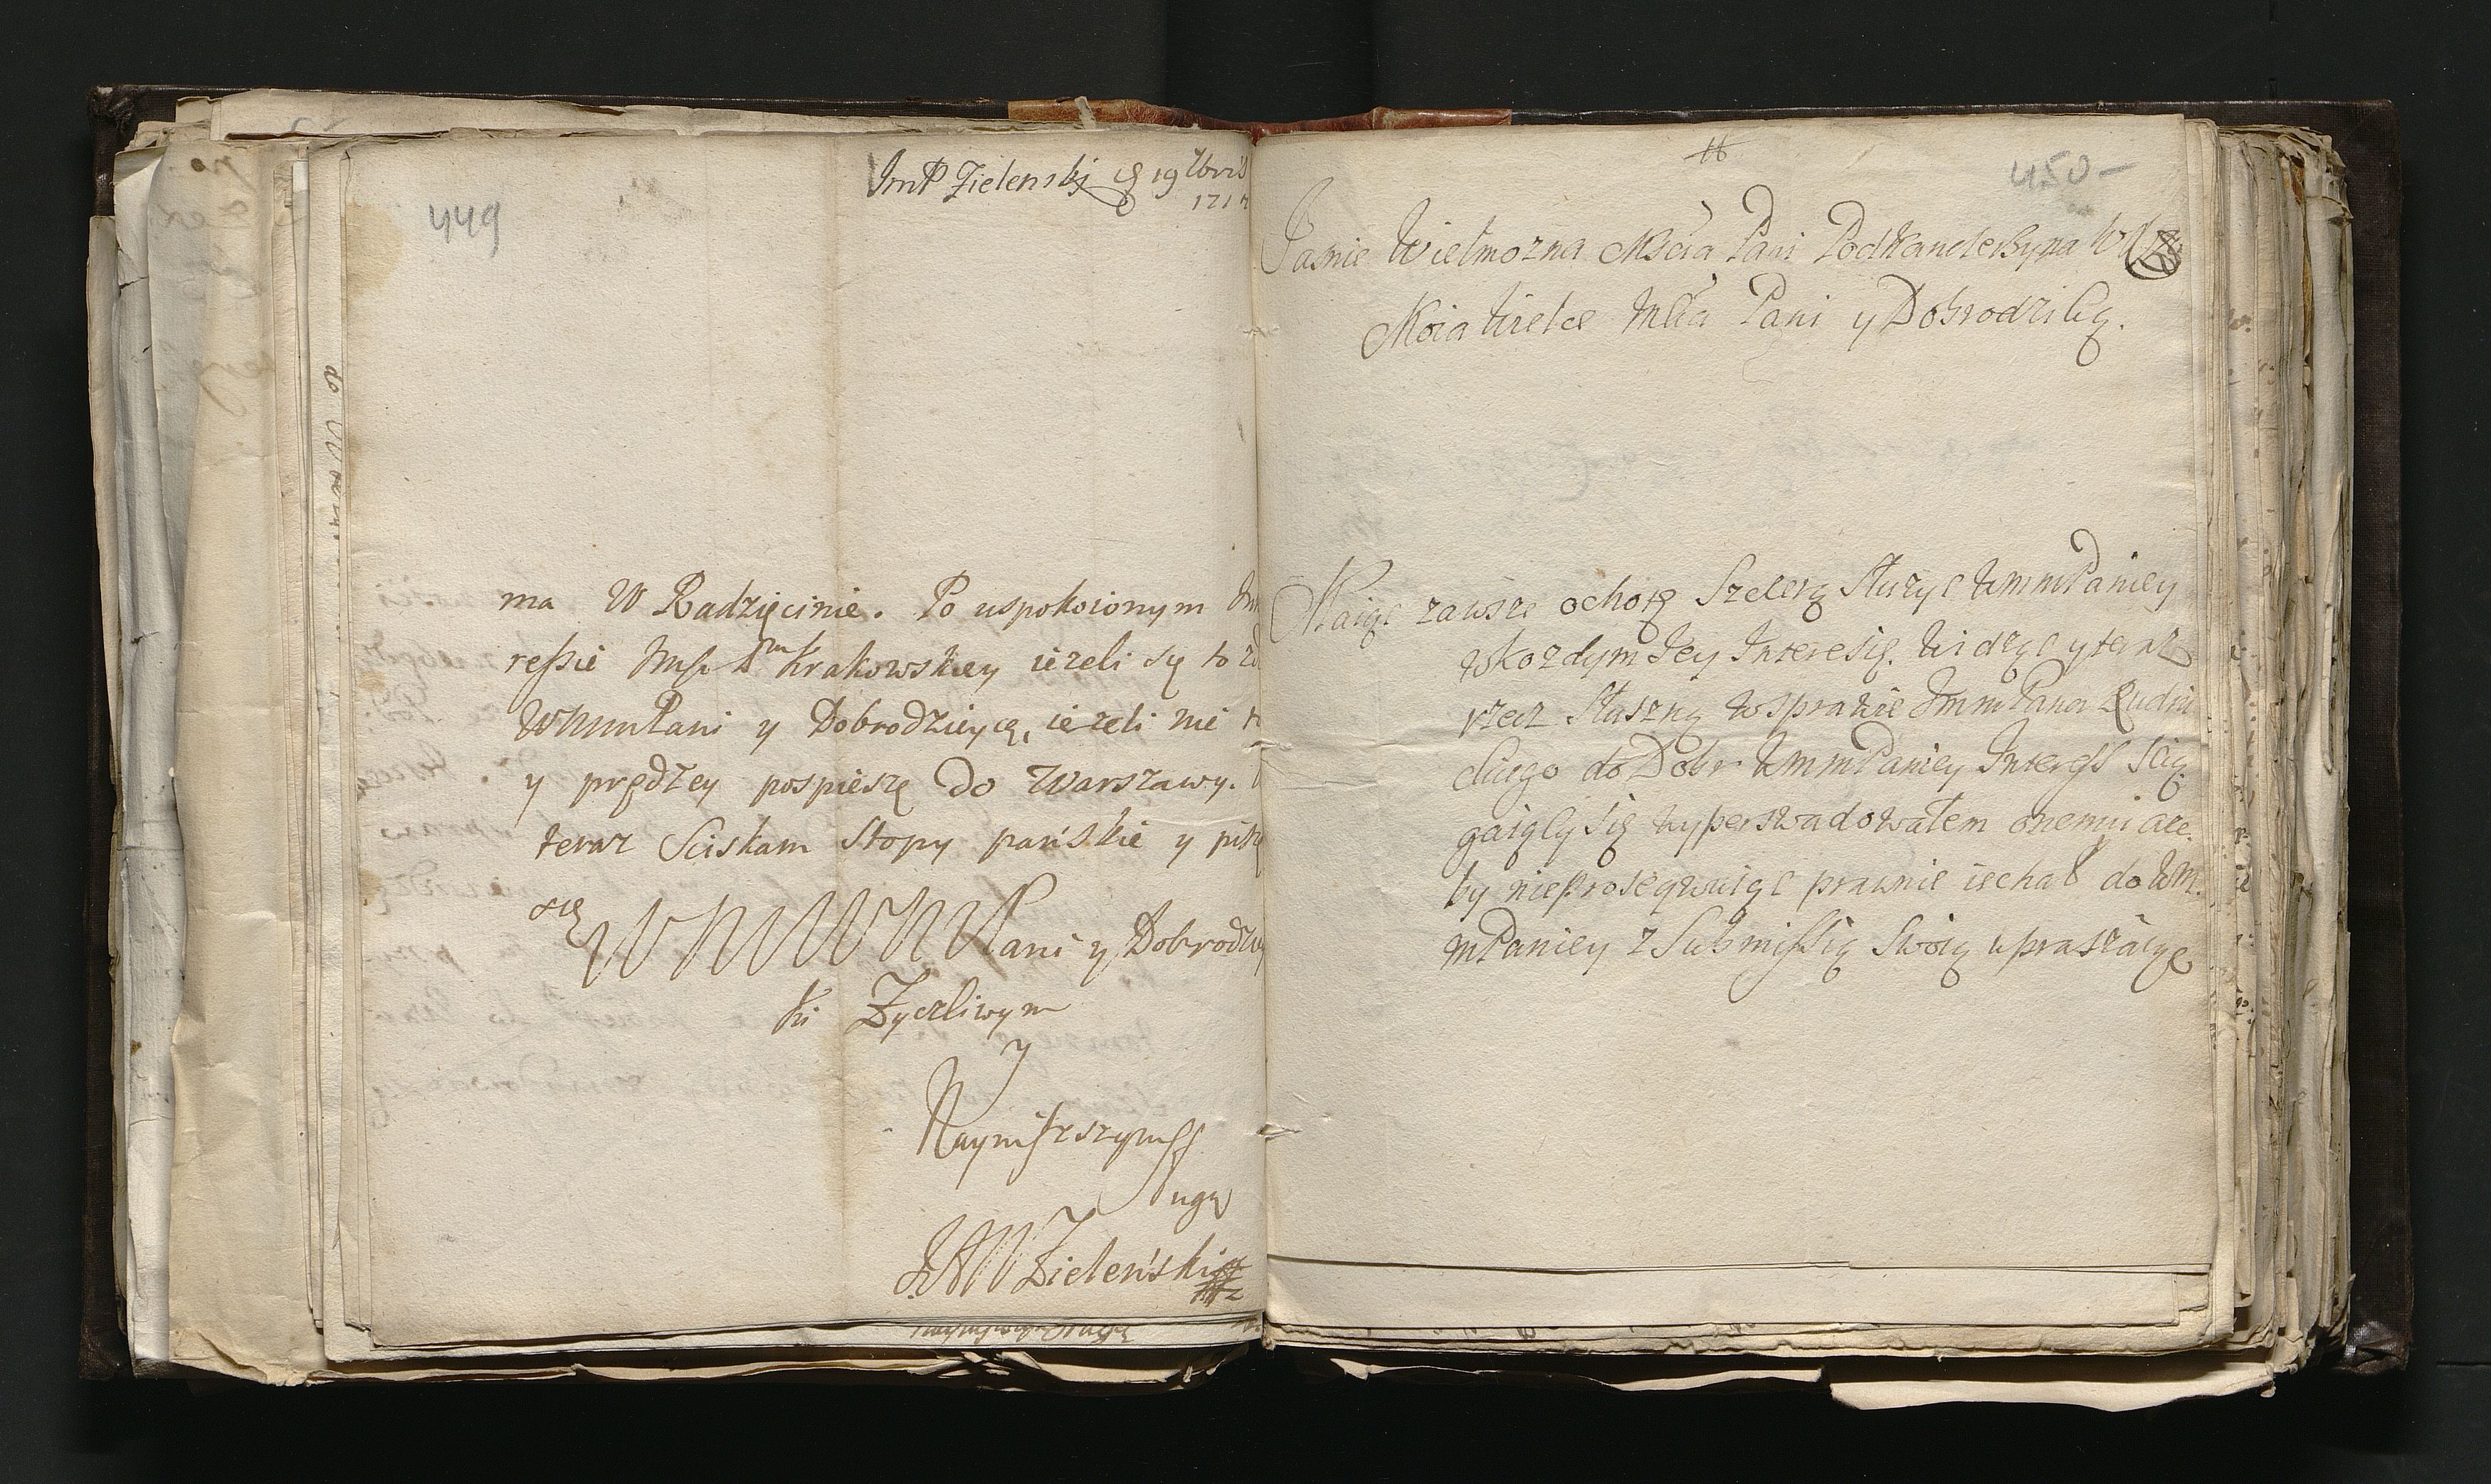 449
JmP Zielenskj d 19 7bris
1717
ma W Radzięcinie. Po uspokoionym
reßie Krakowskiey ieżeli
WMmPani y Dobrodzieycę, ieżeli nie
y prędzey pospieszę do Warszawy.
teraz Sciskam Stopy pańskie y
się WMWMPani y Dobrodzey
ki Zyczliwym
y
Nayniższym
Sługą
Zieleński
450
Jasnie Wielmozna Mscia Pani Podkanclerzyna
Moia Wielce Mscia Pani y Dobrodziką.
Maiąc zawsze ochotę Szczerą Słuzyc WmmPaniey
wkozdym Jey Interesię. Widząc y teraz
rzecz Słuszną wsprawie JmmPana
do Dobr WmmPaniey Interess Scią
gaiąly się wyperswadowałem onemu aze
by nieproseqwuiąc prawnie iechał do WM
mPaniey z Submissią Swoią upraszaiąc